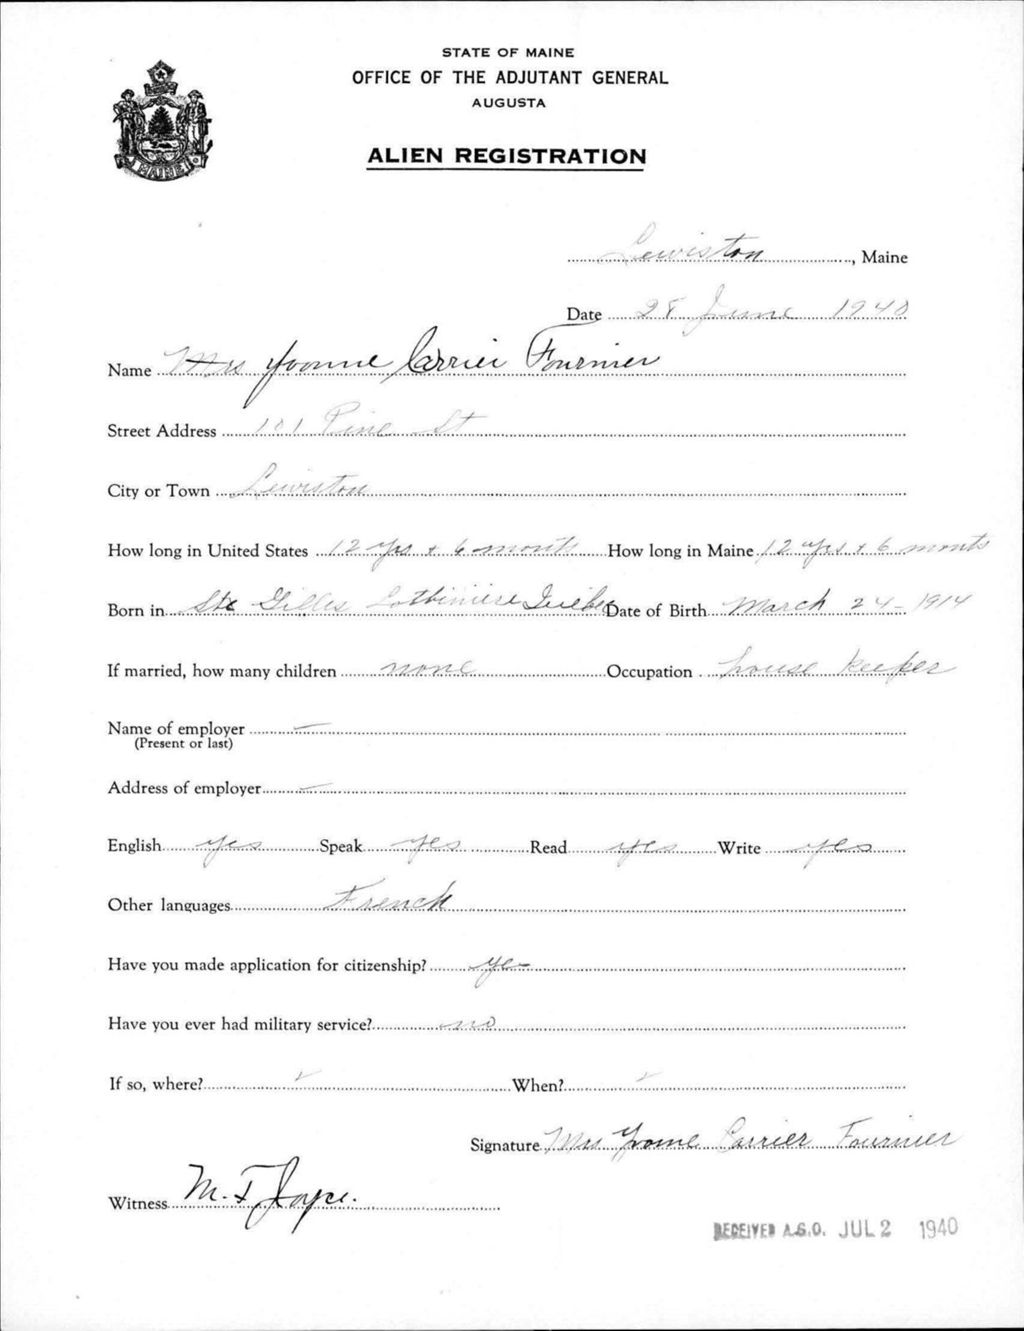 STATE OF MAINE
OFFICE OF THE ADJUTANT GENERAL
AUGUSTA
ALIEN REGISTRATION
MAINE
Lewiston, Maine
Date 28 June 1940
Name Mrs Yvonne Carrier Fournier
Street Address 101 Pine St
City or Town Lewiston
How long in United States 12 yrs + 6 months How long in Maine 12 yrs + 6 months
Born in Ste Gilles Lotbiniere Quebec Date of Birth March 24 - 1914
If married, how many children none Occupation house keeper
Name of employer -
(Present or last)
Address of employer -
English yes Speak yes Read yes Write yes
Other languages French
Have you made application for citizenship? yes
Have you ever had military service? no
If so, where? When?
Signature Mrs Yvonne Carrier Fournier
Witness M. F. Joyce.
RECEIVED A.G.O. JUL 2 1940